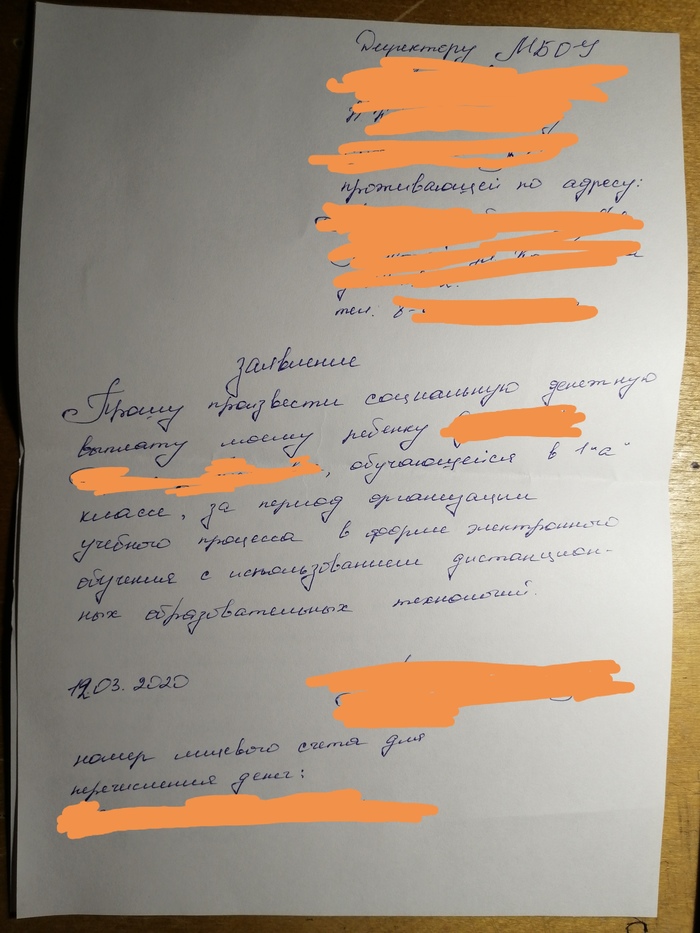 Директору МБОУ
проживающей по адресу:
тел: 8-
заявление
Прошу произвести социальную денежную
выплату моему ребенку
, обучающейся в 1 "а"
классе, за период организации
учебного процесса в форме электронного
обучения с использованием дистанцион-
ных образовательных технологий.
19.03.2020
номер лицевого счета для
перечисления денег: